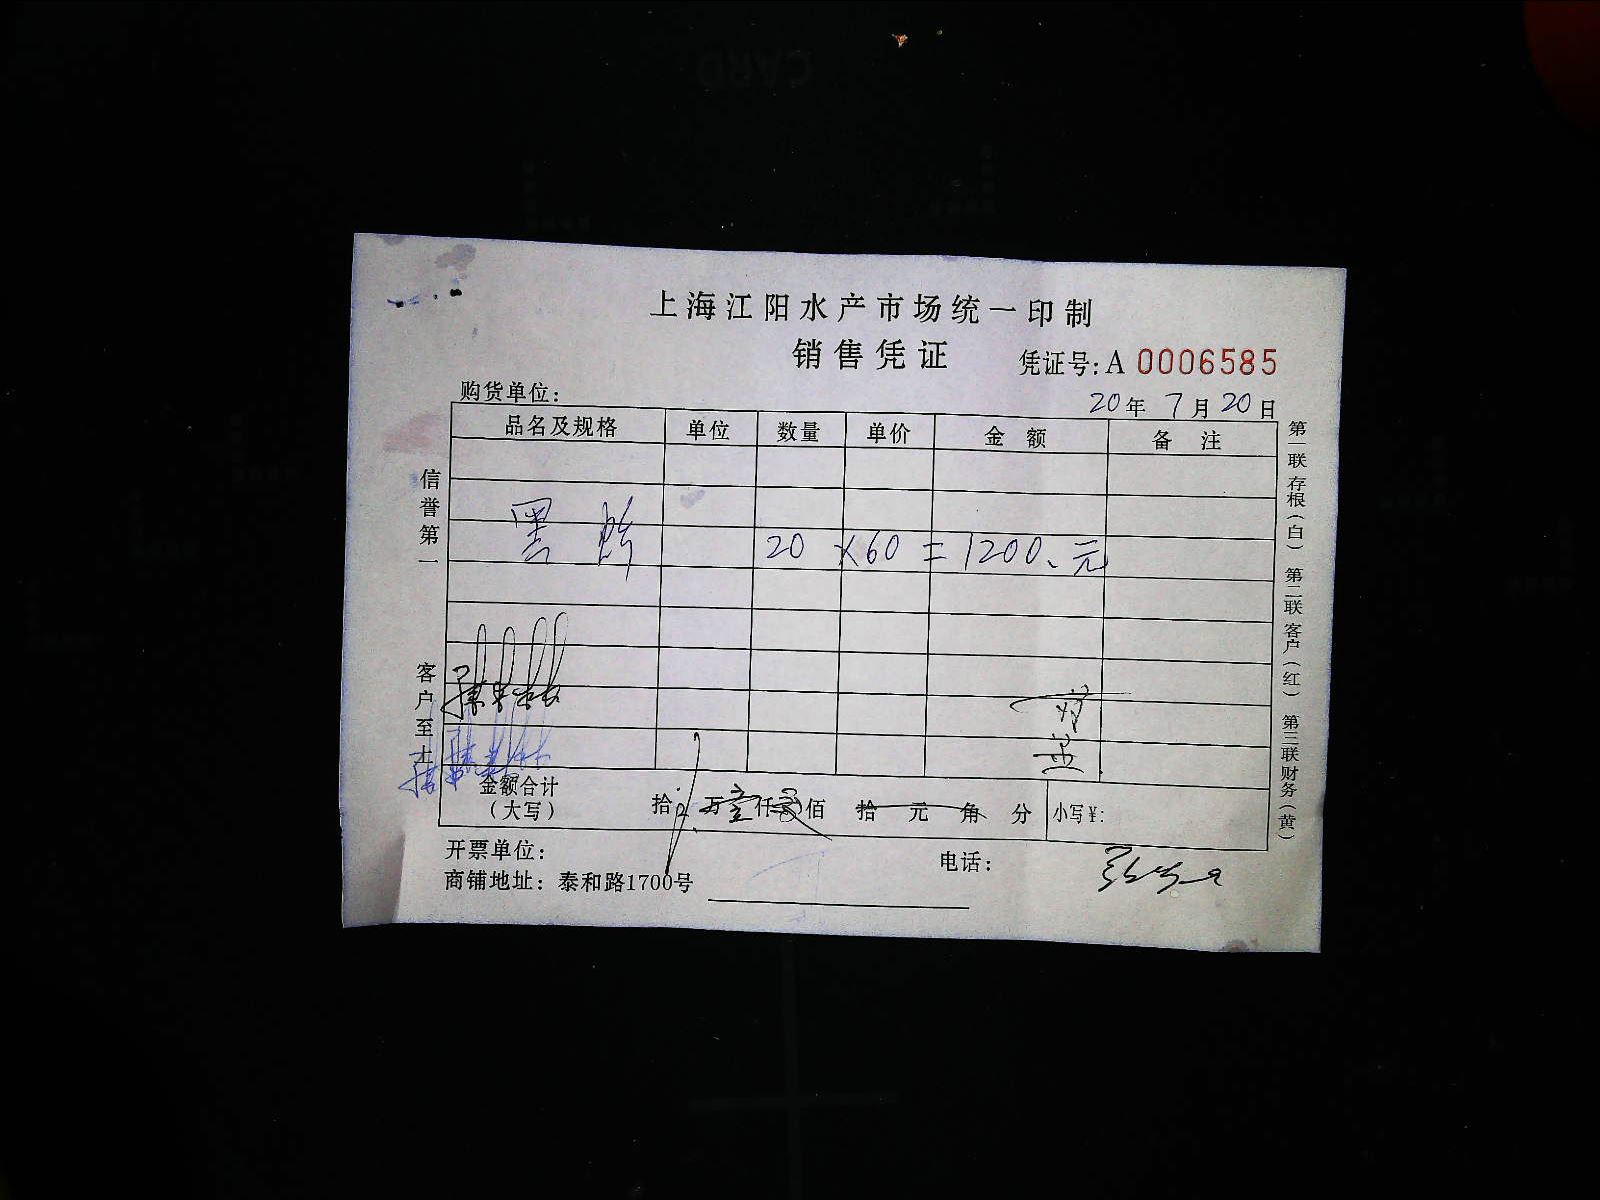 上海江阳水产市场统一印制
销售凭证
凭证号:A 0006585
购货单位:
20年 7月 20日
品名及规格 单位 数量 单价 金 额 备 注
黑 20 ×60 = 1200、元
金额合计
(大写)
拾 万 壹 仟 贰 佰 拾 元 角 分 小写¥:
开票单位:
电话:
商铺地址: 泰和路1700号
信誉第一
客户至上
第一联 存根(白) 第二联 客户(红) 第三联 财务(黄)